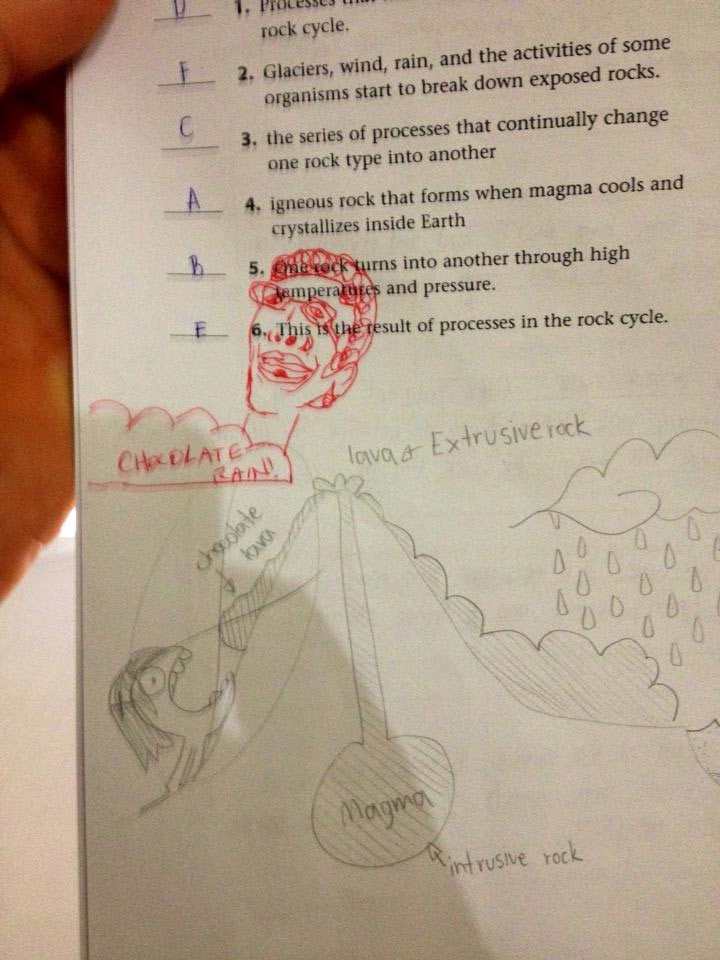 D
1. Processes
rock cycle.
F
2. Glaciers, wind, rain, and the activities of some
organisms start to break down exposed rocks.
C
3. the series of processes that continually change
one rock type into another
A
4. igneous rock that forms when magma cools and
crystallizes inside Earth
B
5. One rock turns into another through high
temperatures and pressure.
E
6. This is the result of processes in the rock cycle.
CHOCOLATE
RAIN!
lava & Extrusive rock
chocolate
lava
Magma
intrusive rock